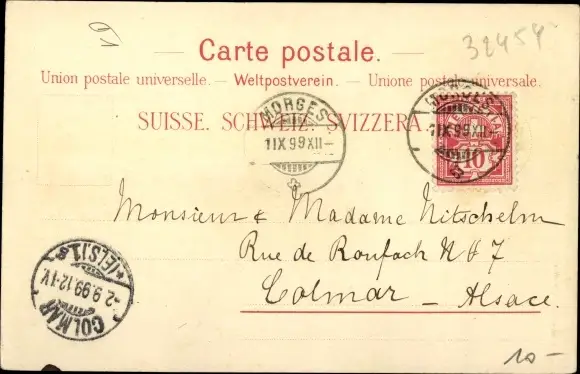 32454
Carte postale.
Union postale universelle. – Weltpostverein. – Unione postale universale.
SUISSE. SCHWEIZ. SVIZZERA
MORGES
1 IX 99 XII–
MORGES
1 IX 99 XII–
10
Monsieur & Madame Nitschelm
Rue de Roufach N° 7
Colmar – Alsace.
COLMAR
2.9.99.12-1V.
(ELS.) 1
10 –